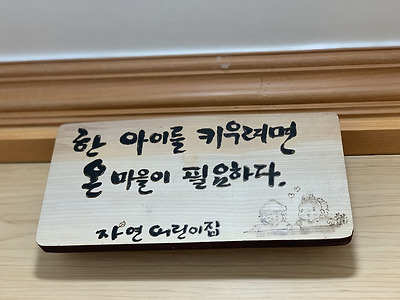 한 아이를 키우려면
온 마을이 필요하다.
자연어린이집